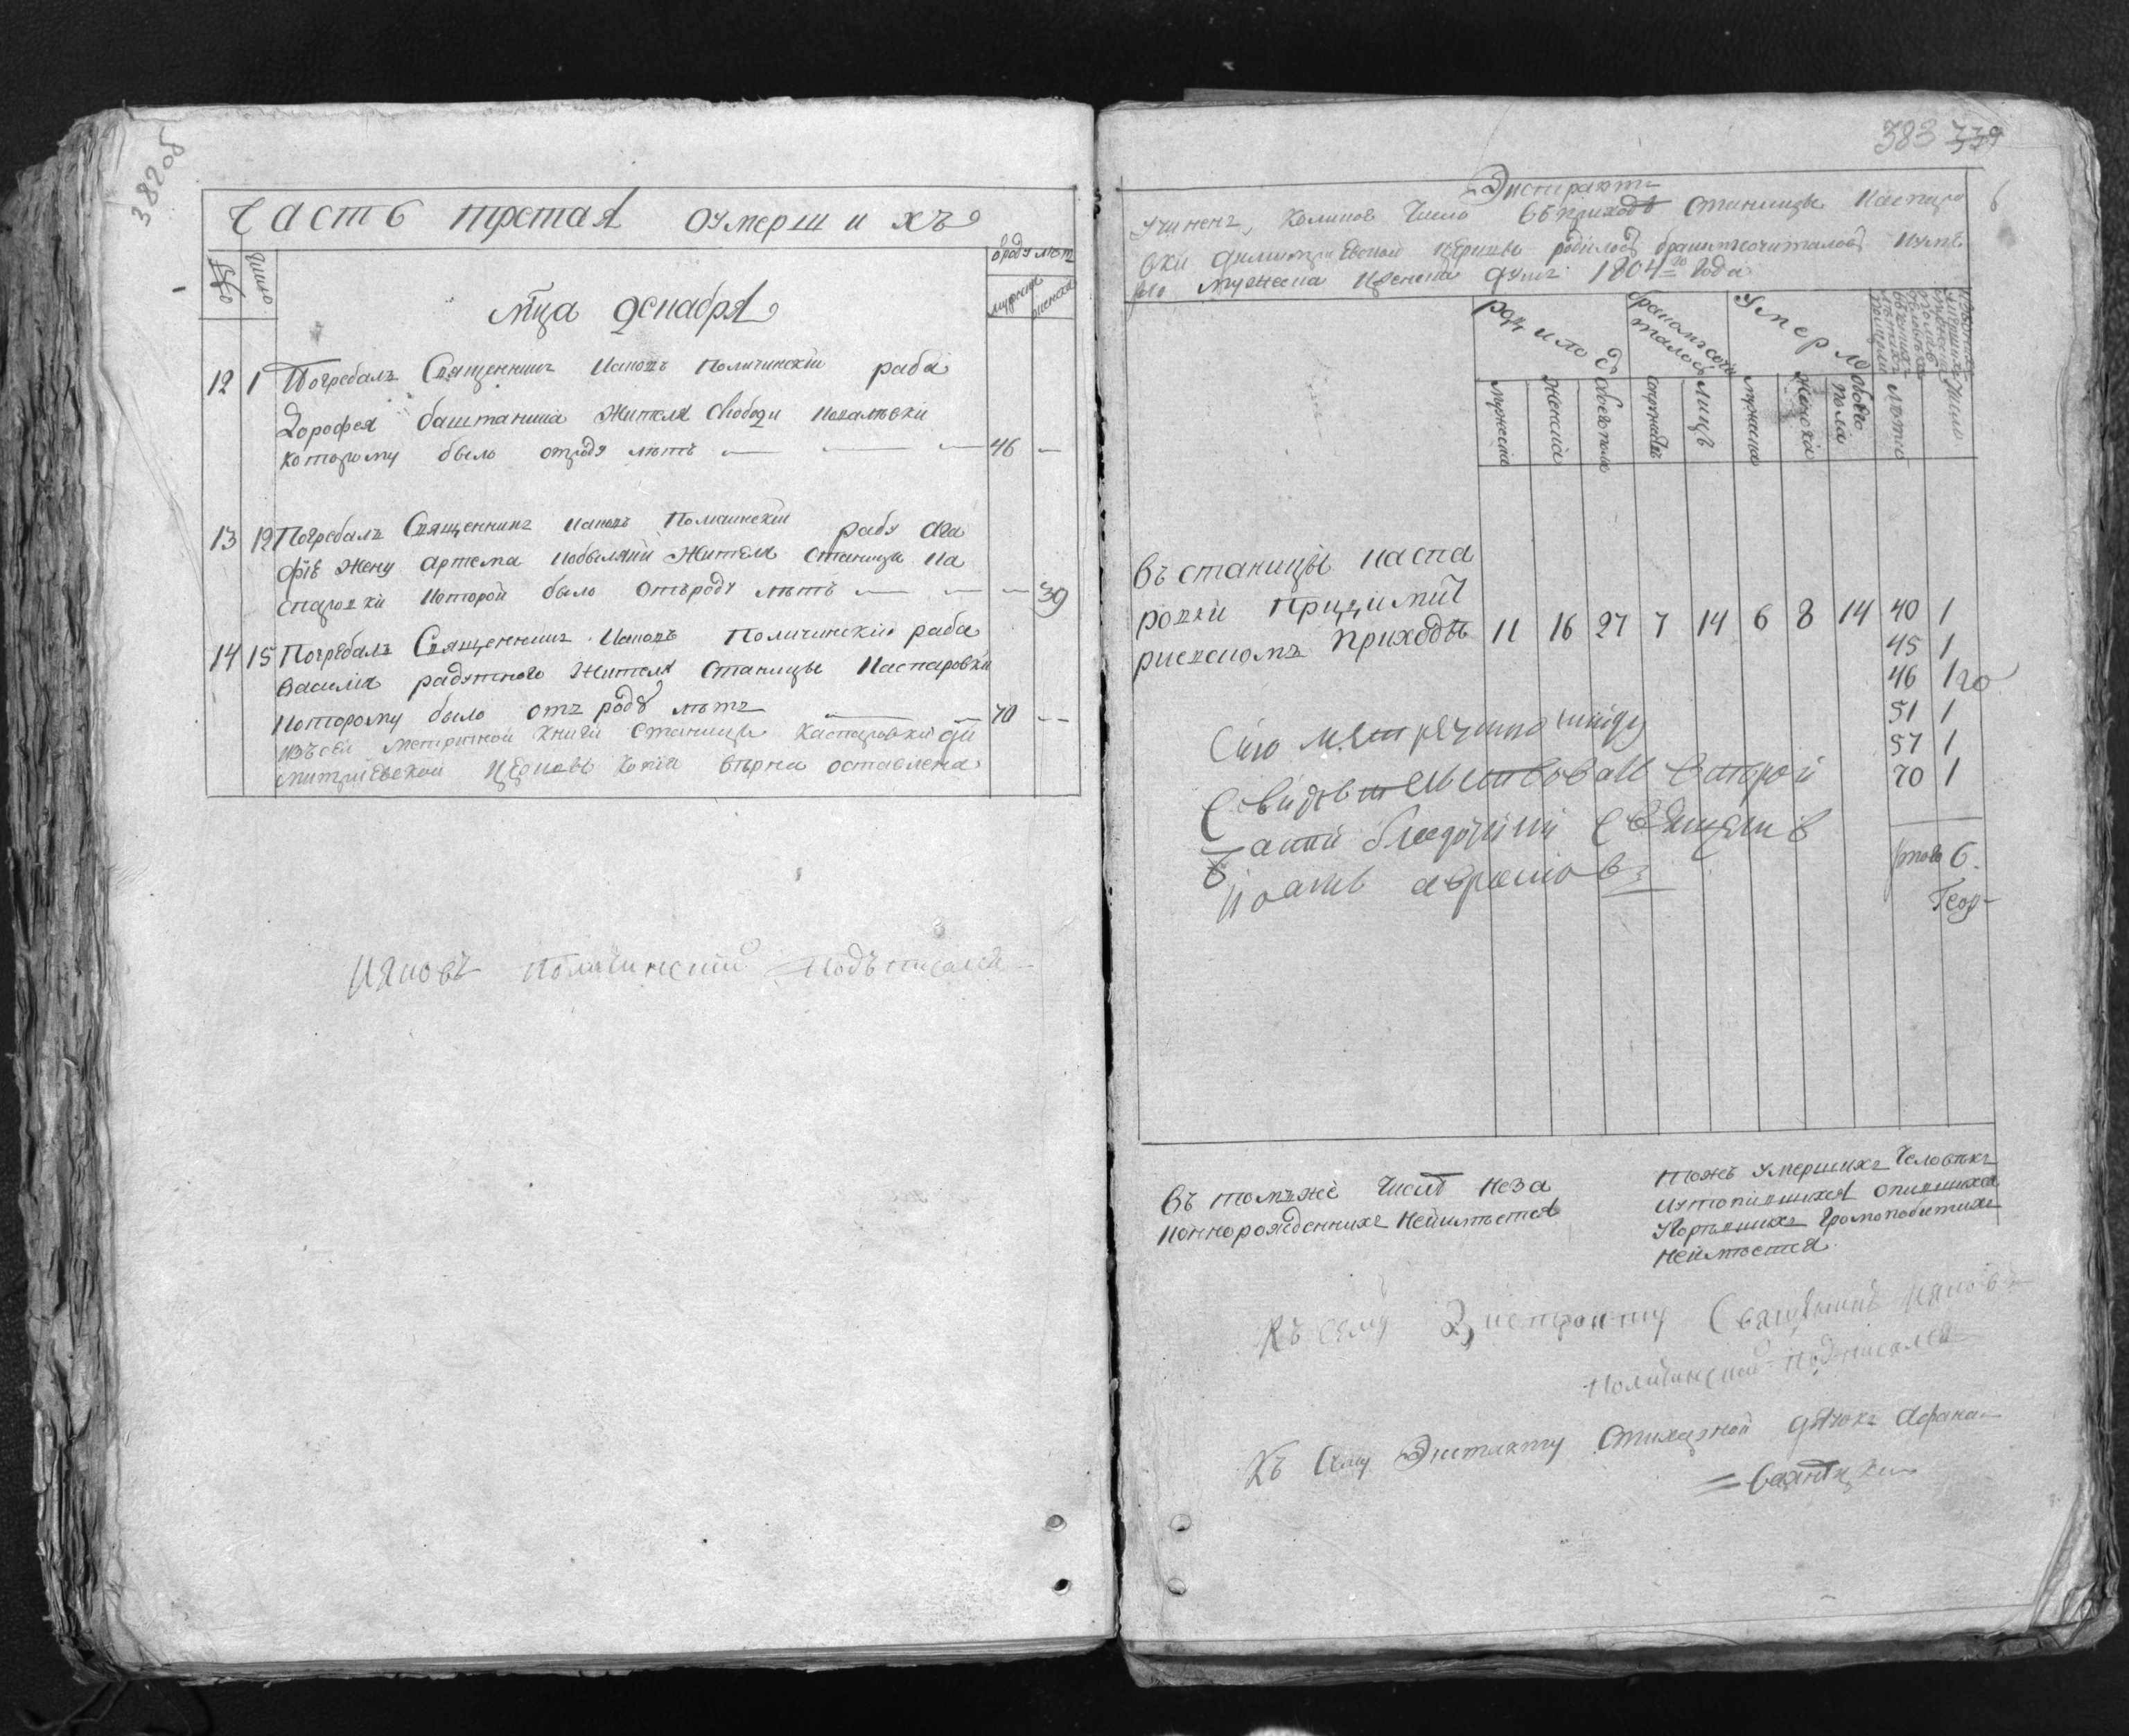 382об
Часть третая оумерших
число
отроду лѣт
мужеска
женска
мца декабря
12 1 Погребалъ Священникъ Иаковъ Поличинскій раба
Дорофея баштаника Жителя Слободи
которому было отродя лѣтъ — — — 46 —
13 12 Погребалъ Священникъ Иаковъ Поличинскій рабу Ага
фію Жену Артема Жителя Станицы Ка
спаровки которой было отъроду лѣтъ — — — 39
14 15 Погребалъ Священникъ Иаковъ Поличинскій раба
Василия Жителя Станицы Каспаровки
которому было отъ роду лѣтъ — — 70 —
изъсей метричной книги Станицы Каспаровки ди
митриевской церковь копия вѣрна оставлена
Иаковъ Поличинский подъписался
383 339
Экстрактъ
Учиненъ, Коликое Число въ приходѣ Станицы Каспаро
вки димитриевской церкви родилось бракомсочиталось иумѣ
рло мужеска иженска душъ 1804го Года
родилось
бракомсочи
талось
Умерло
мужеска
женска
обоегополя
лицъ
мужеска
женска
обоего
пола
лѣта
число
въ станицы Каспа
ровки Придими
риевскомъ Приходѣ 11 16 27 7 14 6 8 14 40 1
45 1
46 1
51 1
57 1
70 1
того 6.
Сию метрическую книгу
Свидѣтелствовалъ второй
части благочинный Священник
Иоаннъ
въ томъже Числѣ неза
коннорожденнихъ неимѣется
Тожъ Умершихъ Человѣкъ
иутопившихся опившихся
громопобитихъ
неимѣется
Къ сему Экстракту Священникъ Иаковъ
Поличинский подписался
Къ Сему Экстракту Стихарной дячокъ Афана-